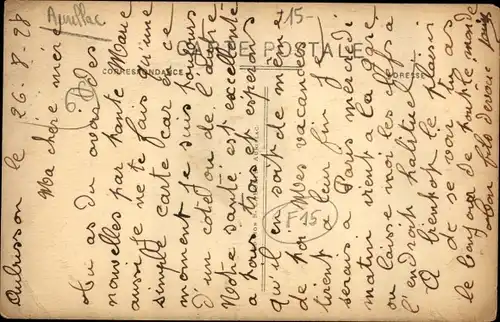 Aurillac
15-
CARTE POSTALE
CORRESPONDANCE
ADRESSE
F15
Aubusson le 26-8-28
Ma chère mère
Tu as du avoir des
nouvelles par tante Marie
aussi je ne te fais qu'une
simple carte car en ce
moment je suis toujours
d'un coté ou de l'autre
Notre santé est excellente
a tous trois et esperons
qu'il en soit de même
de toi Mes vacances
tirent a leur fin je
serais a Paris mercredi
matin vient a la gare
ou laisse moi les clefs a
l'endroit habituel
A bientot le plaisir
de se voir
le bonjour de tout le monde
ton fils devoué